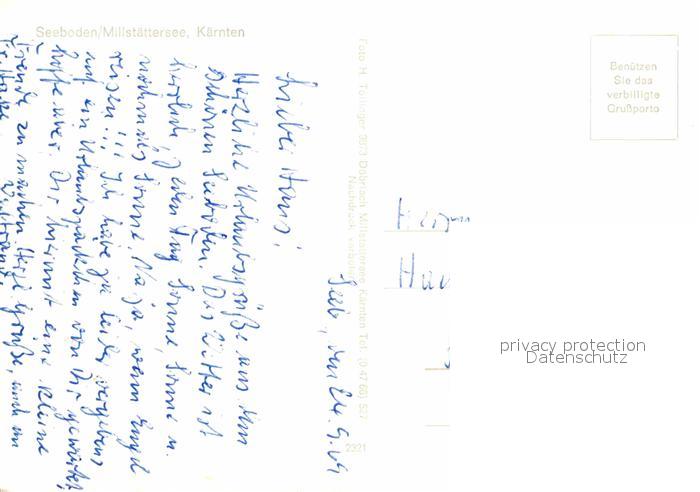 Seeboden/Millstättersee, Kärnten
Benützen
Sie das
verbilligte
Grußporto
Foto H. 9873 Döbriach Millstättersee Kärnten Tel. (0 47 66) 527
Nachdruck verboten
2321
Seeb, den 24. 9. 69
Lieber Hans!
Herzliche Urlaubsgrüße aus dem
schönen Seeboden. Das Wetter ist
herrlich, jeden Tag Sonne, Sonne u.
nochmals Sonne. Na ja, wenn Engel
reisen!!! Ich habe ja leider vergebens
auf ein Urlaubspäckchen von Dir gewartet,
hoffe aber, Dir hiermit eine kleine
Freude zu machen. Herzl. Grüße, auch an
Herrn
privacy protection
Datenschutz